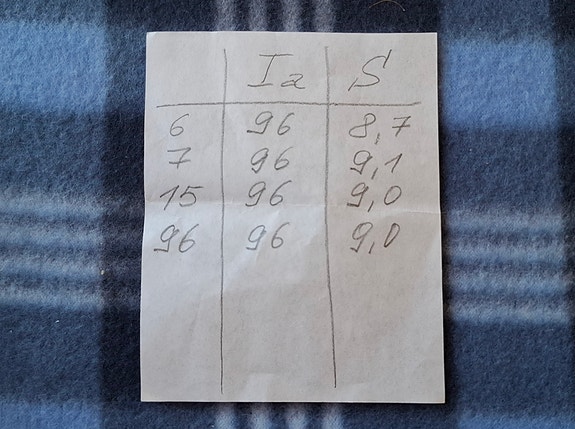 Iz S
6 96 8,7
7 96 9,1
15 96 9,0
96 96 9,0